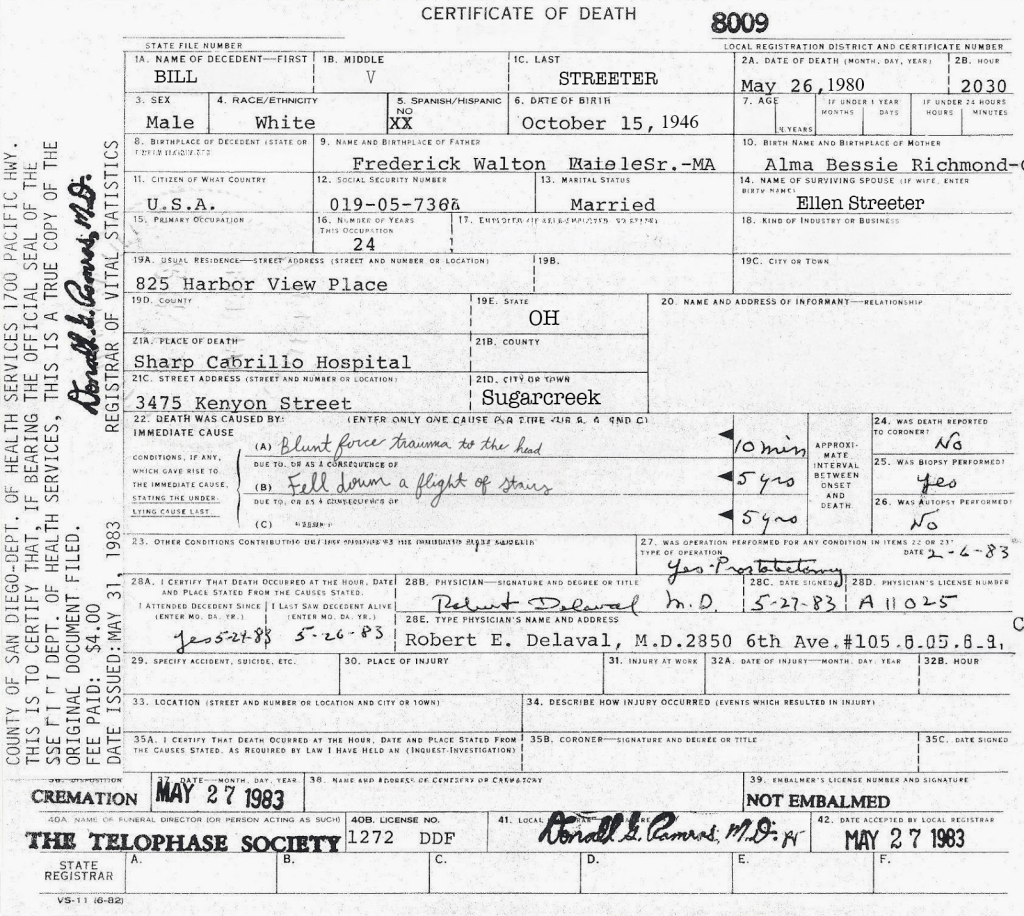 CERTIFICATE OF DEATH
8009
STATE FILE NUMBER
LOCAL REGISTRATION DISTRICT AND CERTIFICATE NUMBER
1A. NAME OF DECEDENT—FIRST
1B. MIDDLE
1C. LAST
2A. DATE OF DEATH (MONTH, DAY, YEAR)
2B. HOUR
BILL
V
STREETER
May 26, 1980
2030
3. SEX
4. RACE/ETHNICITY
5. SPANISH/HISPANIC
NO
6. DATE OF BIRTH
7. AGE
IF UNDER 1 YEAR
MONTHS DAYS
IF UNDER 24 HOURS
HOURS MINUTES
YEARS
Male
White
XX
October 15, 1946
8. BIRTHPLACE OF DECEDENT (STATE OR
9. NAME AND BIRTHPLACE OF FATHER
10. BIRTH NAME AND BIRTHPLACE OF MOTHER
Frederick Walton Sr.-MA
Alma Bessie Richmond-
11. CITIZEN OF WHAT COUNTRY
12. SOCIAL SECURITY NUMBER
13. MARITAL STATUS
14. NAME OF SURVIVING SPOUSE (IF WIFE, ENTER
BIRTH NAME)
U.S.A.
019-05-736
Married
Ellen Streeter
15. PRIMARY OCCUPATION
16. NUMBER OF YEARS
THIS OCCUPATION
17. EMPLOYER
18. KIND OF INDUSTRY OR BUSINESS
24
19A. USUAL RESIDENCE—STREET ADDRESS (STREET AND NUMBER OR LOCATION)
19B.
19C. CITY OR TOWN
825 Harbor View Place
19D. COUNTY
19E. STATE
20. NAME AND ADDRESS OF INFORMANT—RELATIONSHIP
OH
21A. PLACE OF DEATH
21B. COUNTY
Sharp Cabrillo Hospital
21C. STREET ADDRESS (STREET AND NUMBER OR LOCATION)
21D. CITY OR TOWN
3475 Kenyon Street
Sugarcreek
22. DEATH WAS CAUSED BY:
(ENTER ONLY ONE CAUSE
IMMEDIATE CAUSE
(A) Blunt force trauma to the head
10 min
CONDITIONS, IF ANY,
WHICH GAVE RISE TO
THE IMMEDIATE CAUSE,
STATING THE UNDER-
LYING CAUSE LAST
DUE TO, OR AS A CONSEQUENCE OF
(B) Fell down a flight of stairs
5 yrs
DUE TO, OR AS A CONSEQUENCE OF
(C)
5 yrs
APPROXI-
MATE
INTERVAL
BETWEEN
ONSET
AND
DEATH
24. WAS DEATH REPORTED
TO CORONER?
No
25. WAS BIOPSY PERFORMED?
yes
26. WAS AUTOPSY PERFORMED?
No
23. OTHER CONDITIONS
27. WAS OPERATION PERFORMED FOR ANY CONDITION IN ITEMS 22 OR 23?
TYPE OF OPERATION
DATE 2-6-83
Yes-Prostatectomy
28A. I CERTIFY THAT DEATH OCCURRED AT THE HOUR, DATE
AND PLACE STATED FROM THE CAUSES STATED.
28B. PHYSICIAN—SIGNATURE AND DEGREE OR TITLE
28C. DATE SIGNED
28D. PHYSICIAN'S LICENSE NUMBER
I ATTENDED DECEDENT SINCE
(ENTER MO. DA. YR.)
I LAST SAW DECEDENT ALIVE
(ENTER MO. DA. YR.)
Robert Delaval M.D.
5-27-83
A 11025
5-26-83
28E. TYPE PHYSICIAN'S NAME AND ADDRESS
Robert E. Delaval, M.D.2850 6th Ave.#105
29. SPECIFY ACCIDENT, SUICIDE, ETC.
30. PLACE OF INJURY
31. INJURY AT WORK
32A. DATE OF INJURY—MONTH, DAY, YEAR
32B. HOUR
33. LOCATION (STREET AND NUMBER OR LOCATION AND CITY OR TOWN)
34. DESCRIBE HOW INJURY OCCURRED (EVENTS WHICH RESULTED IN INJURY)
35A. I CERTIFY THAT DEATH OCCURRED AT THE HOUR, DATE AND PLACE STATED FROM
THE CAUSES STATED. AS REQUIRED BY LAW I HAVE HELD AN (INQUEST-INVESTIGATION)
35B. CORONER—SIGNATURE AND DEGREE OR TITLE
35C. DATE SIGNED
36. DISPOSITION
37. DATE—MONTH, DAY, YEAR
38. NAME AND ADDRESS OF CEMETERY OR CREMATORY
39. EMBALMER'S LICENSE NUMBER AND SIGNATURE
CREMATION
MAY 27 1983
NOT EMBALMED
40A. NAME OF FUNERAL DIRECTOR (OR PERSON ACTING AS SUCH)
40B. LICENSE NO.
41. LOCAL
42. DATE ACCEPTED BY LOCAL REGISTRAR
THE TELOPHASE SOCIETY
1272 DDF
Donald G. Ramras, M.D.
MAY 27 1983
STATE
REGISTRAR
A.
B.
C.
D.
E.
F.
VS-11 (6-82)
COUNTY OF SAN DIEGO-DEPT. OF HEALTH SERVICES 1700 PACIFIC HWY.
THIS IS TO CERTIFY THAT, IF BEARING THE OFFICIAL SEAL OF THE
DEPT. OF HEALTH SERVICES, THIS IS A TRUE COPY OF THE
ORIGINAL DOCUMENT FILED.
FEE PAID: $4.00
DATE ISSUED: MAY 31, 1983
Donald G. Ramras, M.D.
REGISTRAR OF VITAL STATISTICS